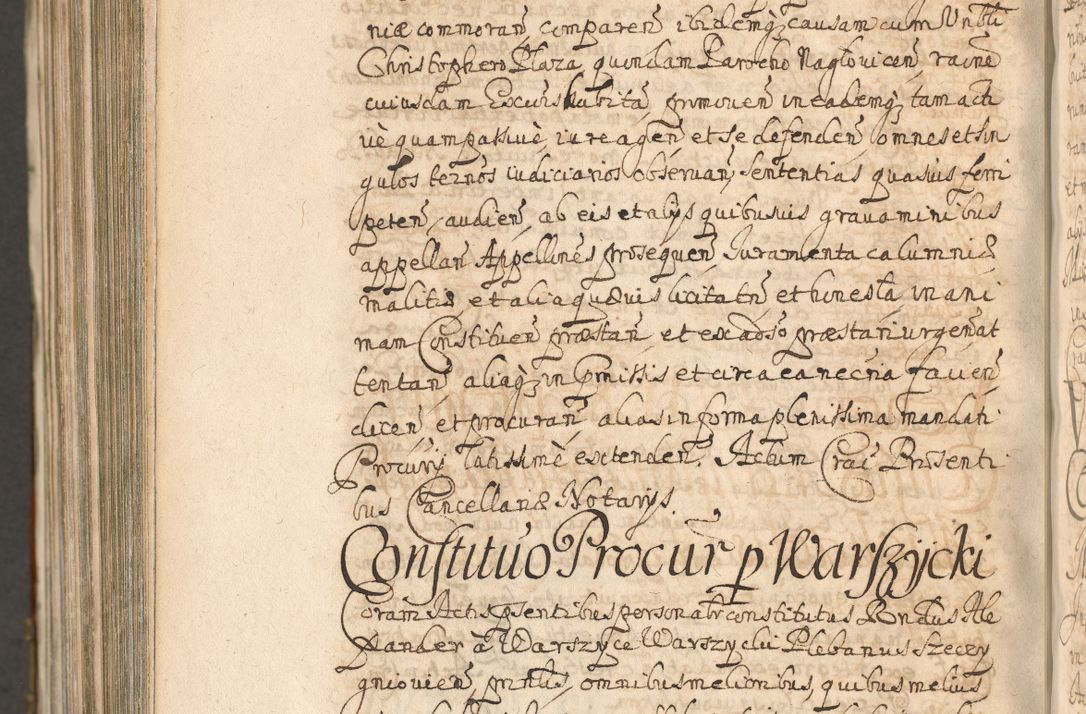 niæ commoran̄ comparen̄ ibidemq; causam cum Vnbli
Christophero Plaza quondam Parocho Nagłovicen̄ raōne
cuiusdam Excurs habita promoven̄ in eademq; tam acti
ve quam passive, iure agen̄ et se defenden̄ omnes et sin
gulos termōs iudiciarios observan̄, sententias quasvis ferri
peten̄, audien̄, ab eis et alijs quibusvis gravaminibus
appellan̄ Appellnēs prosequen̄ Juramenta calumniæ
malitiæ, et alia quævis licita tn̄ et honesta in ani
mam Constituen̄ præstan̄ et ex adso præstari urgen̄ at
tentan̄ aliaq; in pmissis et circa ea necn̄a facien̄
dicen̄ et procuran̄ alias in forma plenissima mandati
Procurij latissimè extenden̄. Actum Crac̄ Præsenti
bus Cancellariæ Notarijs.
Constitūo Procur̄ p Warszijcki
Coram Actis psentibus personalr̄ constitutus Rndus Ale
xander à Warszyce Warszycki Plebanus Szczey
gniovien̄, pntibus, omnibus melioribus quibus melius